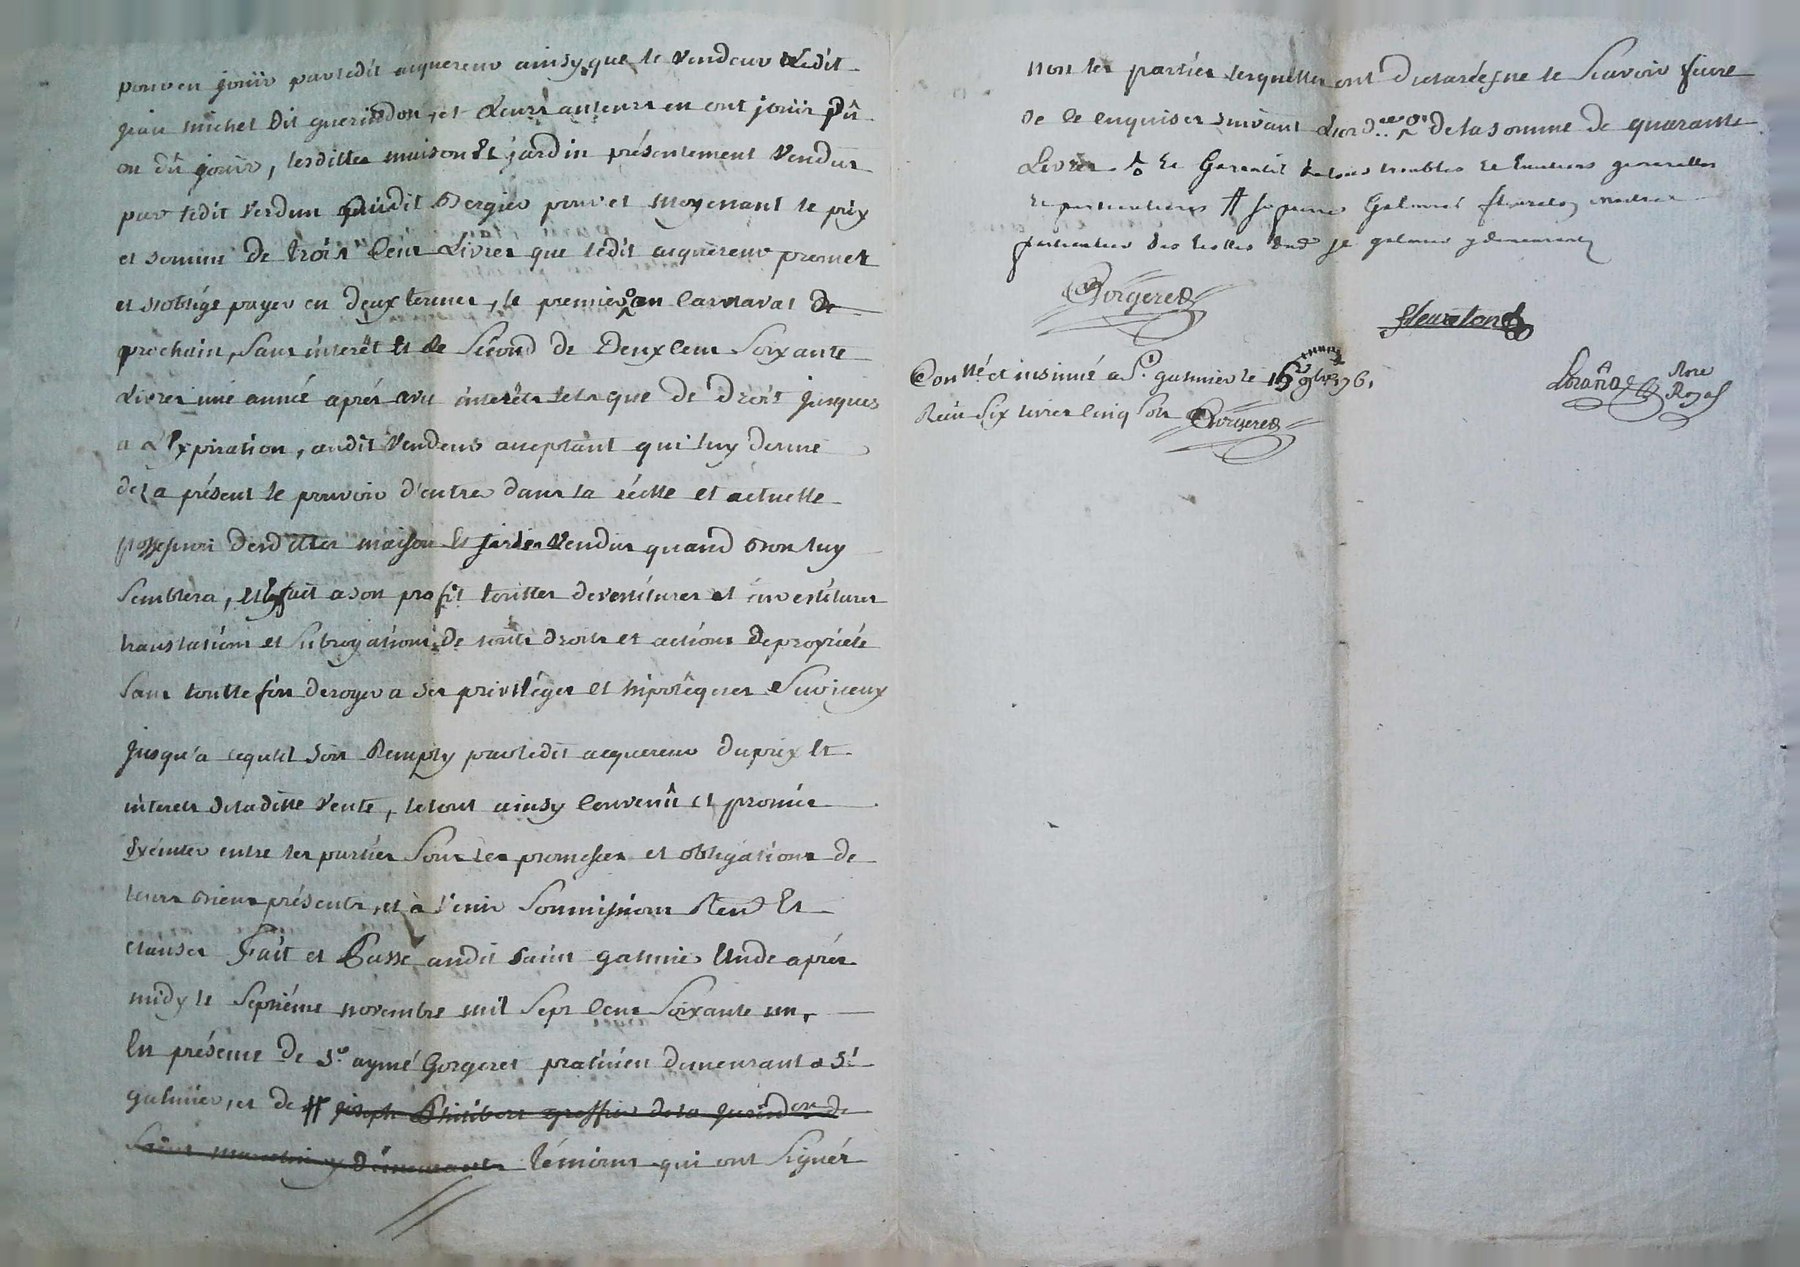 pour en jouir par ledit acquereur ainsy que le vendeur ledit
jean michel dit guerindon, et leurs auteurs en ont jouir pû
ou dû jouir, lesdittes maison et jardin présentement vendus
par ledit verdun audit Bergier pour et moyenant le prix
et somme de trois cent livres que ledit acquéreur promet
et s'oblige payer en deux termes, le premier en carnaval de
prochain, sans interêt et le second de Deux cent soixante
Livres une année aprés avec interêts tels que de droit jusques
a L'expiration, audit vendeur acceptant qui luy donne
dez a présent le pouvoir d'entrer dans la réelle et actuelle
possession desdittes maison et jardin vendus quand bon luy
semblera, et a fait a son profit touttes devestitures et investitures
translations et subrogations de touts droits et actions de propriété
sans touttefois deroger a ses privilêges et hipotêques sur iceux
jusqu'a cequ'il soit Remply par ledit acquereur du prix et
interets de laditte vente, le tout ainsy convenû et promis
exécuter entre les parties sous les promesses et obligations de
leurs biens présents, et à venir soumissions Renon et
clauses Fait et Passé audit saint galmier Etude aprés
midy le septiéme novembre mil sept cent soixante un,
En présence de Sr aymé Gorgeret praticien demeurant a St
galmier, et de # joseph Philibert greffier de la jurisdon de
saint marcelin y demeurants témoins qui ont signés
non les parties lesquelles ont declarées ne le sçavoir faire
de ce enquises suivant L'ord.ce de la somme de quarante
Livres & et Garantit de tous troubles et evictions generalles
et particulieres # sr pierre Galmier fleureton
particulier des de St galmier y demeurant
Gorgeret
fleureton
Controllé et insinué a St galmier le 16 9bre 1761
Reçu six livres cinq sols Gorgeret
Nore
Royal